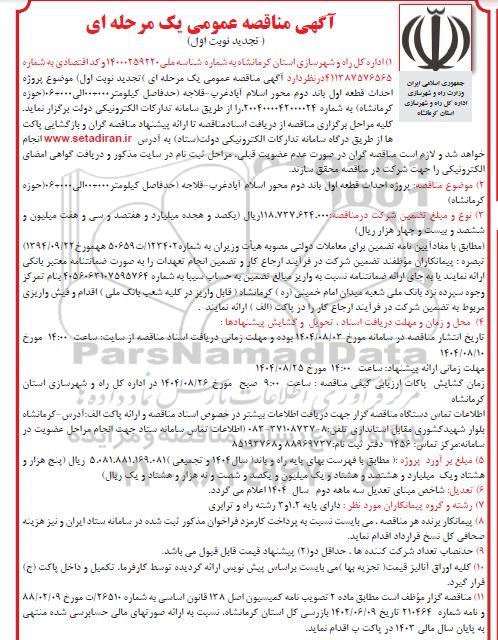 آگهی مناقصه عمومی یک مرحله ای
( تجدید نوبت اول)
جمهوری اسلامی ایران
وزارت راه و شهرسازی
اداره کل راه و شهرسازی
استان کرمانشاه
۱) اداره کل راه و شهرسازی استان کرمانشاه به شماره شناسه ملی ۱۴۰۰۰۲۵۹۲۲۰ و کد اقتصادی به شماره
۴۱۱۳۸۷۵۷۶۵۶۵ در نظر دارد آگهی مناقصه عمومی یک مرحله ای (تجدید نوبت اول) موضوع پروژه
احداث قطعه اول باند دوم محور اسلام آبادغرب-قلاجه (حدفاصل کیلومتر ۰۰۰+۰۰ الی ۰۰۰+۰۶) (حوزه
کرمانشاه) به شماره ۲۰۰۴۰۰۰۴۲۲۰۰۰۰۲۴ را از طریق سامانه تدارکات الکترونیکی دولت برگزار نماید.
کلیه مراحل برگزاری مناقصه از دریافت اسناد مناقصه تا ارائه پیشنهاد مناقصه گران و بازگشایی پاکت
ها از طریق درگاه سامانه تدارکات الکترونیکی دولت(ستاد) به آدرس www.setadiran.ir انجام
خواهد شد و لازم است مناقصه گران در صورت عدم عضویت قبلی، مراحل ثبت نام در سایت مذکور و دریافت گواهی امضای
الکترونیکی را جهت شرکت در مناقصه محقق سازند.
۲) موضوع مناقصه: پروژه احداث قطعه اول باند دوم محور اسلام آبادغرب-قلاجه (حدفاصل کیلومتر ۰۰۰+۰۰ الی ۰۰۰+۰۶) (حوزه
کرمانشاه)
۳) نوع و مبلغ تضمین شرکت در مناقصه: ۱۱۸.۷۳۷.۶۲۴.۰۰۰ ریال (یکصد و هجده میلیارد و هفتصد و سی و هفت میلیون و
ششصد و بیست و چهار هزار ریال)
(مطابق با مفاد آیین نامه تضمین برای معاملات دولتی مصوبه هیأت وزیران به شماره ۱۲۳۴۰۲/ت ۵۰۶۵۹ هـ مورخ ۱۳۹۴/۰۹/۲۲)
تبصره : پیمانکاران موظفند تضمین شرکت در فرآیند ارجاع کار و تضمین انجام تعهدات را به صورت ضمانتنامه معتبر بانکی
ارائه نمایند یا به جای ارائه ضمانتنامه نسبت به واریز مبالغ تضمین به حساب سیبا به شماره ۴۰۵۶۰۶۳۱۰۷۵۹۵۷۶۴ بنام تمرکز
وجوه سپرده نزد بانک ملی شعبه میدان امام خمینی (ره ) کرمانشاه ( قابل واریز در کلیه شعب بانک ملی ) اقدام و فیش واریزی
مربوط به تضمین شرکت در فرآیند ارجاع کار را در پاکت (الف ) ارائه نمایند .
۴) محل و زمان و مهلت دریافت اسناد ، تحویل و گشایش پیشنهادها :
تاریخ انتشار مناقصه در سامانه مورخ ۱۴۰۴/۰۸/۰۳ بوده و مهلت زمانی دریافت اسناد مناقصه از سایت: ساعت ۱۴:۰۰ مورخ
۱۴۰۴/۰۸/۱۰
مهلت زمانی ارائه پیشنهاد: ساعت ۱۴:۰۰ مورخ ۱۴۰۴/۰۸/۲۵
زمان گشایش پاکات ارزیابی کیفی مناقصه : ساعت ۹:۰۰ صبح مورخ ۱۴۰۴/۰۸/۲۶ در اداره کل راه و شهرسازی استان
کرمانشاه
اطلاعات تماس دستگاه مناقصه گزار جهت دریافت اطلاعات بیشتر در خصوص اسناد مناقصه و ارائه پاکت الف:آدرس-کرمانشاه
بلوار شهیدکشوری مقابل استانداری تلفن: ۸-۳۷۱۰۸۷۳۷-۰۸۳ (اطلاعات تماس سامانه ستاد جهت انجام مراحل عضویت در
سامانه:مرکز تماس: ۱۴۵۶ دفتر ثبت نام: ۸۸۹۶۹۷۳۷ و ۸۵۱۹۳۷۶۸
۵) مبلغ بر آورد پروژه :( مطابق با فهرست بهای پایه راه و باند) سال ۱۴۰۴ و تجمیعی) ۵.۰۸۱.۸۸۱.۱۶۹.۰۸۱ ریال (پنج هزار و
هشتاد و یک میلیارد و هشتصد و هشتاد و یک میلیون و یکصد و شصت و نه هزار و هشتاد و یک ریال)
۶) تعدیل: شاخص مبنای تعدیل سه ماهه دوم سال ۱۴۰۴ اعلام می گردد.
۷) رشته و گروه پیمانکاران مورد نظر : دارای پایه ۱،۲ و ۳ رشته راه و ترابری
۸) پیمانکار برنده هر مناقصه ، می بایست نسبت به پرداخت کارمزد فراخوان مذکور ثبت شده در سامانه ستاد ایران و نیز هزینه
صحافی کل نسخ قرارداد اقدام نماید.
۹) حدنصاب تعداد شرکت کننده ها ، حداقل دو(۲) پیشنهاد قیمت قابل قبول می باشد.
۱۰) کلیه اوراق آنالیز قیمت( تجزیه بها )می بایست براساس پیش نویس ارائه گردیده توسط کارفرما، تکمیل و داخل پاکت (ج)
قرار گیرد.
۱۱) مناقصه گزار مؤظف است مطابق ماده ۲ تصویب نامه کمیسیون اصل ۱۳۸ قانون اساسی به شماره ۲۶۵۱۰/ت مورخ ۸۸/۰۲/۰۹
و نامه شماره ۲۱۰۴۶۴ تاریخ ۱۴۰۲/۰۶/۰۹ بازرسی کل استان کرمانشاه، نسبت به ارائه صورتهای مالی حسابرسی شده منتهی
به پایان سال مالی ۱۴۰۳ در پاکت ب اقدام نماید.